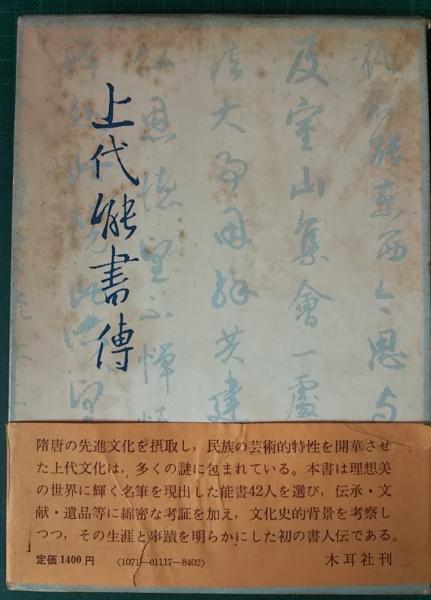 上代能書傳
願不能東西今思与
及室山集會一處
法大事因縁共建
仏恩徳望不憚煩
降赴此院此所望
隋唐の先進文化を摂取し，民族の芸術的特性を開華させ
た上代文化は，多くの謎に包まれている。本書は理想美
の世界に輝く名筆を現出した能書42人を選び，伝承・文
献・遺品等に綿密な考証を加え，文化史的背景を考察し
つつ，その生涯と事蹟を明らかにした初の書人伝である。
定価 1400円 〈1071―01117―8402〉 木耳社刊